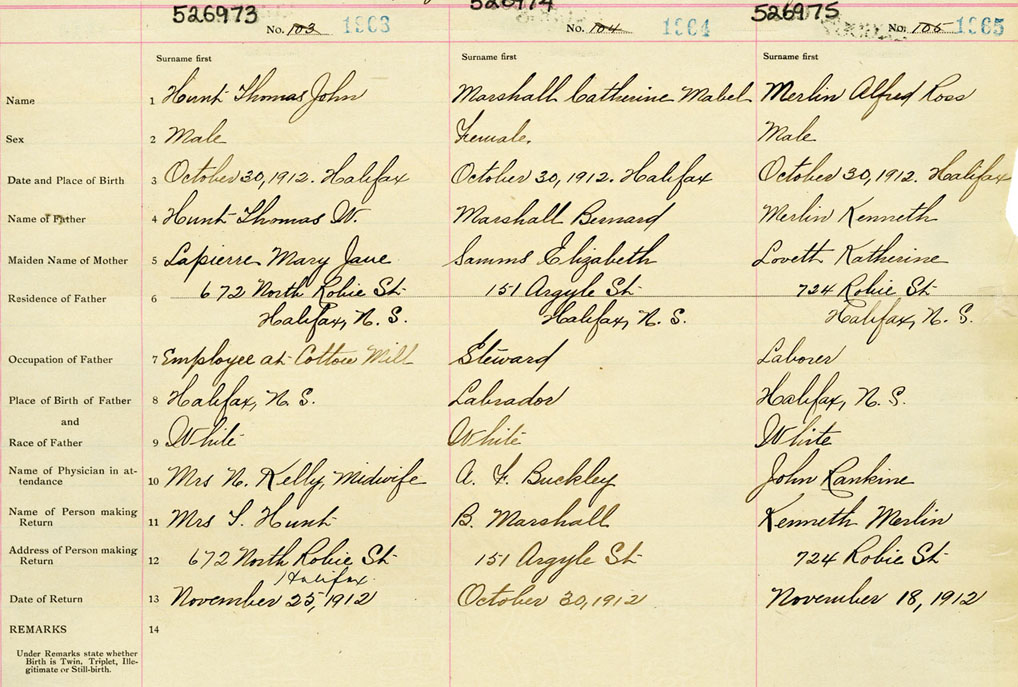 526973 526974 526975
No. 103 1963 No. 104 1964 No. 105 1965
Surname first Surname first Surname first
Name 1 Hunt Thomas John Marshall Catherine Mabel Merlin Alfred Ross
Sex 2 Male Female. Male
Date and Place of Birth 3 October 30, 1912. Halifax October 30, 1912. Halifax October 30, 1912. Halifax
Name of Father 4 Hunt Thomas W. Marshall Bernard Merlin Kenneth
Maiden Name of Mother 5 Lapierre Mary Jane Samms Elizabeth Lovett Katherine
Residence of Father 6 672 North Robie St 151 Argyle St 724 Robie St
Halifax, N. S. Halifax, N. S. Halifax, N. S.
Occupation of Father 7 Employee at Cotton Mill Steward Laborer
Place of Birth of Father 8 Halifax, N. S. Labrador Halifax, N. S.
and
Race of Father 9 White White White
Name of Physician in at-
tendance 10 Mrs N. Kelly, Midwife A. F. Buckley John Rankine
Name of Person making
Return 11 Mrs T. Hunt B. Marshall Kenneth Merlin
Address of Person making
Return 12 672 North Robie St 151 Argyle St 724 Robie St
Halifax
Date of Return 13 November 25, 1912 October 30, 1912 November 18, 1912
REMARKS 14
Under Remarks state whether
Birth is Twin, Triplet, Ille-
gitimate or Still-birth.